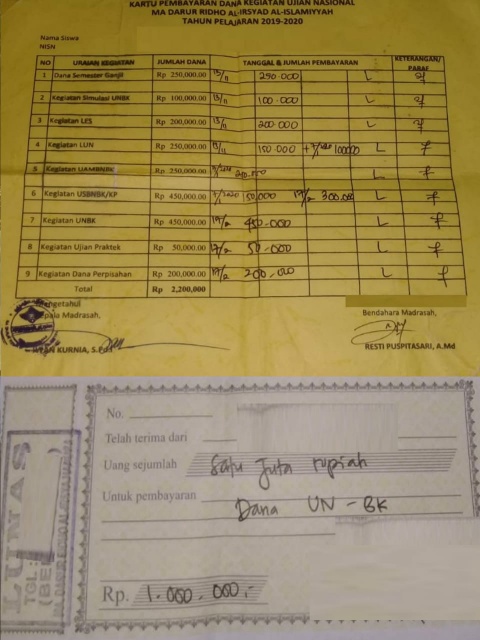 KARTU PEMBAYARAN DANA KEGIATAN UJIAN NASIONAL
MA DARUR RIDHO AL-IRSYAD AL-ISLAMIYYAH
TAHUN PELAJARAN 2019-2020
Nama Siswa
NISN
NO URAIAN KEGIATAN JUMLAH DANA TANGGAL & JUMLAH PEMBAYARAN KETERANGAN/ PARAF
1 Dana Semester Ganjil Rp 250,000.00 13/11 250.000 L
2 Kegiatan Simulasi UNBK Rp 100,000.00 13/11 100.000 L
3 Kegiatan LES Rp 200,000.00 13/11 200.000 L
4 Kegiatan LUN Rp 250,000.00 13/11 150.000 100000 L
5 Kegiatan UAMBNBK Rp 250,000.00 L
6 Kegiatan USBNBK/KP Rp 450,000.00 150,000 17/2 300.000 L
7 Kegiatan UNBK Rp 450,000.00 450.000 L
8 Kegiatan Ujian Praktek Rp 50,000.00 17/2 50.000 L
9 Kegiatan Dana Perpisahan Rp 200,000.00 17/2 200.000 L
Total Rp 2,200,000
Mengetahui
Kepala Madrasah, Bendahara Madrasah,
KURNIA, S.Pd.I RESTI PUSPITASARI, A.Md
No.
Telah terima dari
Uang sejumlah Satu Juta rupiah
Untuk pembayaran Dana UN-BK
Rp. 1.000.000,-
LUNAS
TGL: